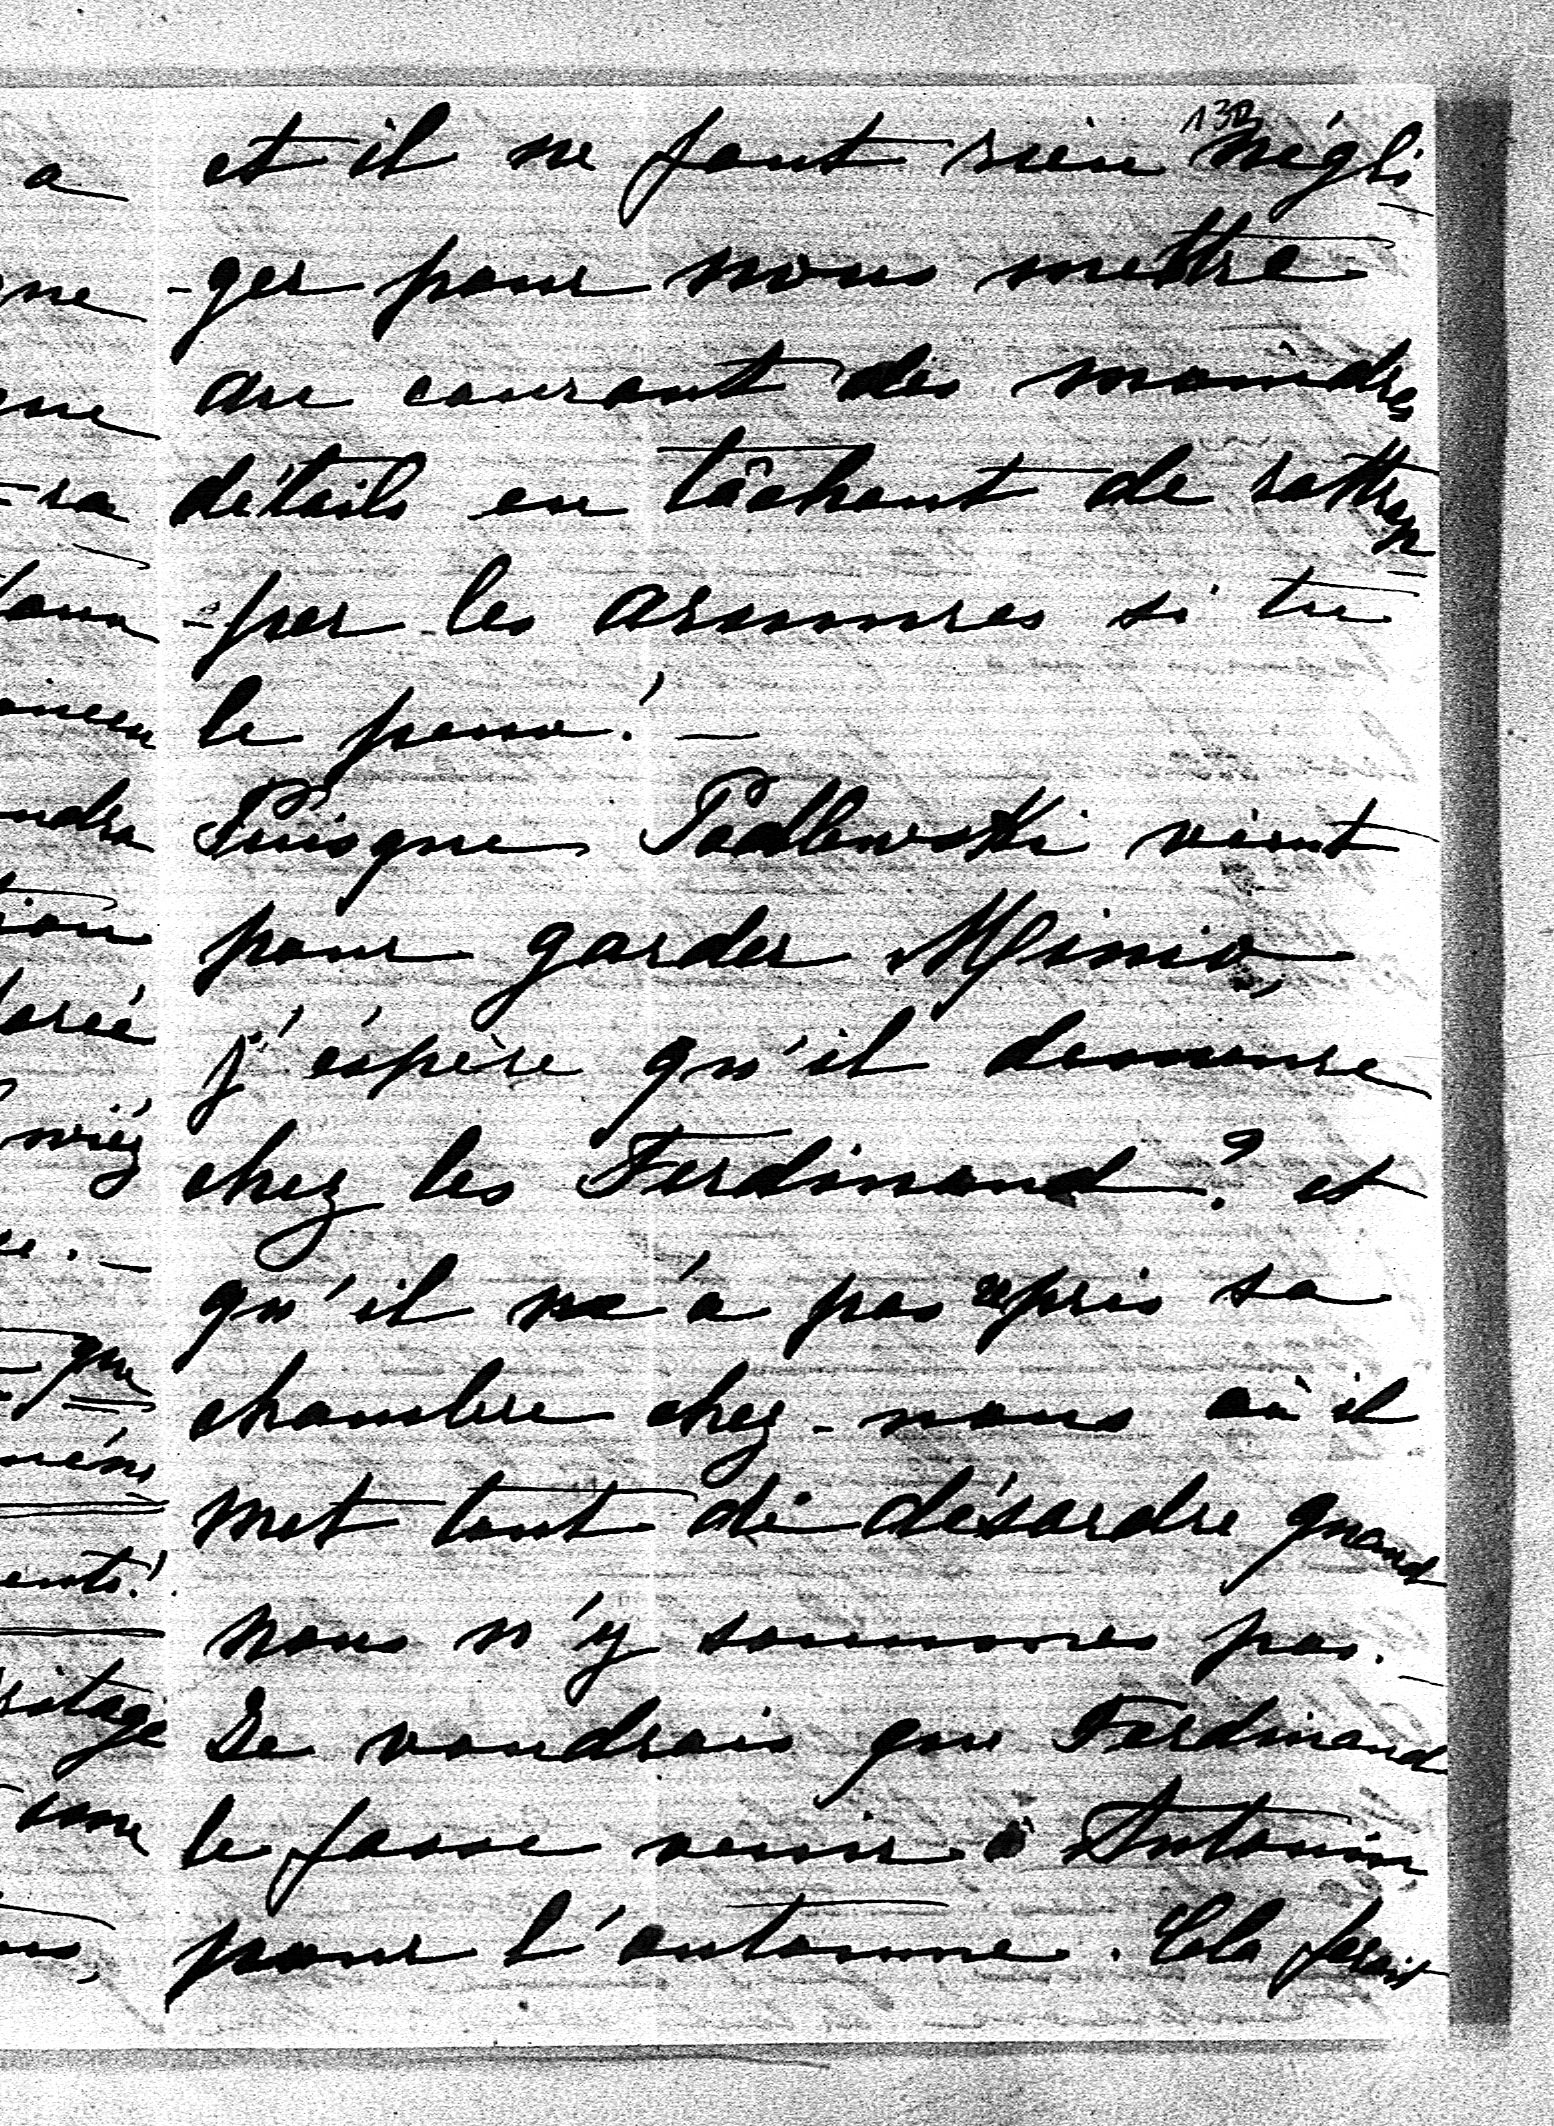 132
et il ne faut rien négli
-ger pour nous mettre
au courant des moindres
détails en tâchant de rattrap
-per les armures si tu
le peux! —
Puisque Podlewski vient
pour garder Minio,
j'espère qu'il demeure
chez les Ferdinand? et
qu'il n'a pas repris sa
chambre chez-nous où il
met tout de désordre quand
nous n'y sommes pas. —
Je voudrais que Ferdinand
le fasse venir à Antonin
pour l'automne. Cela ferait